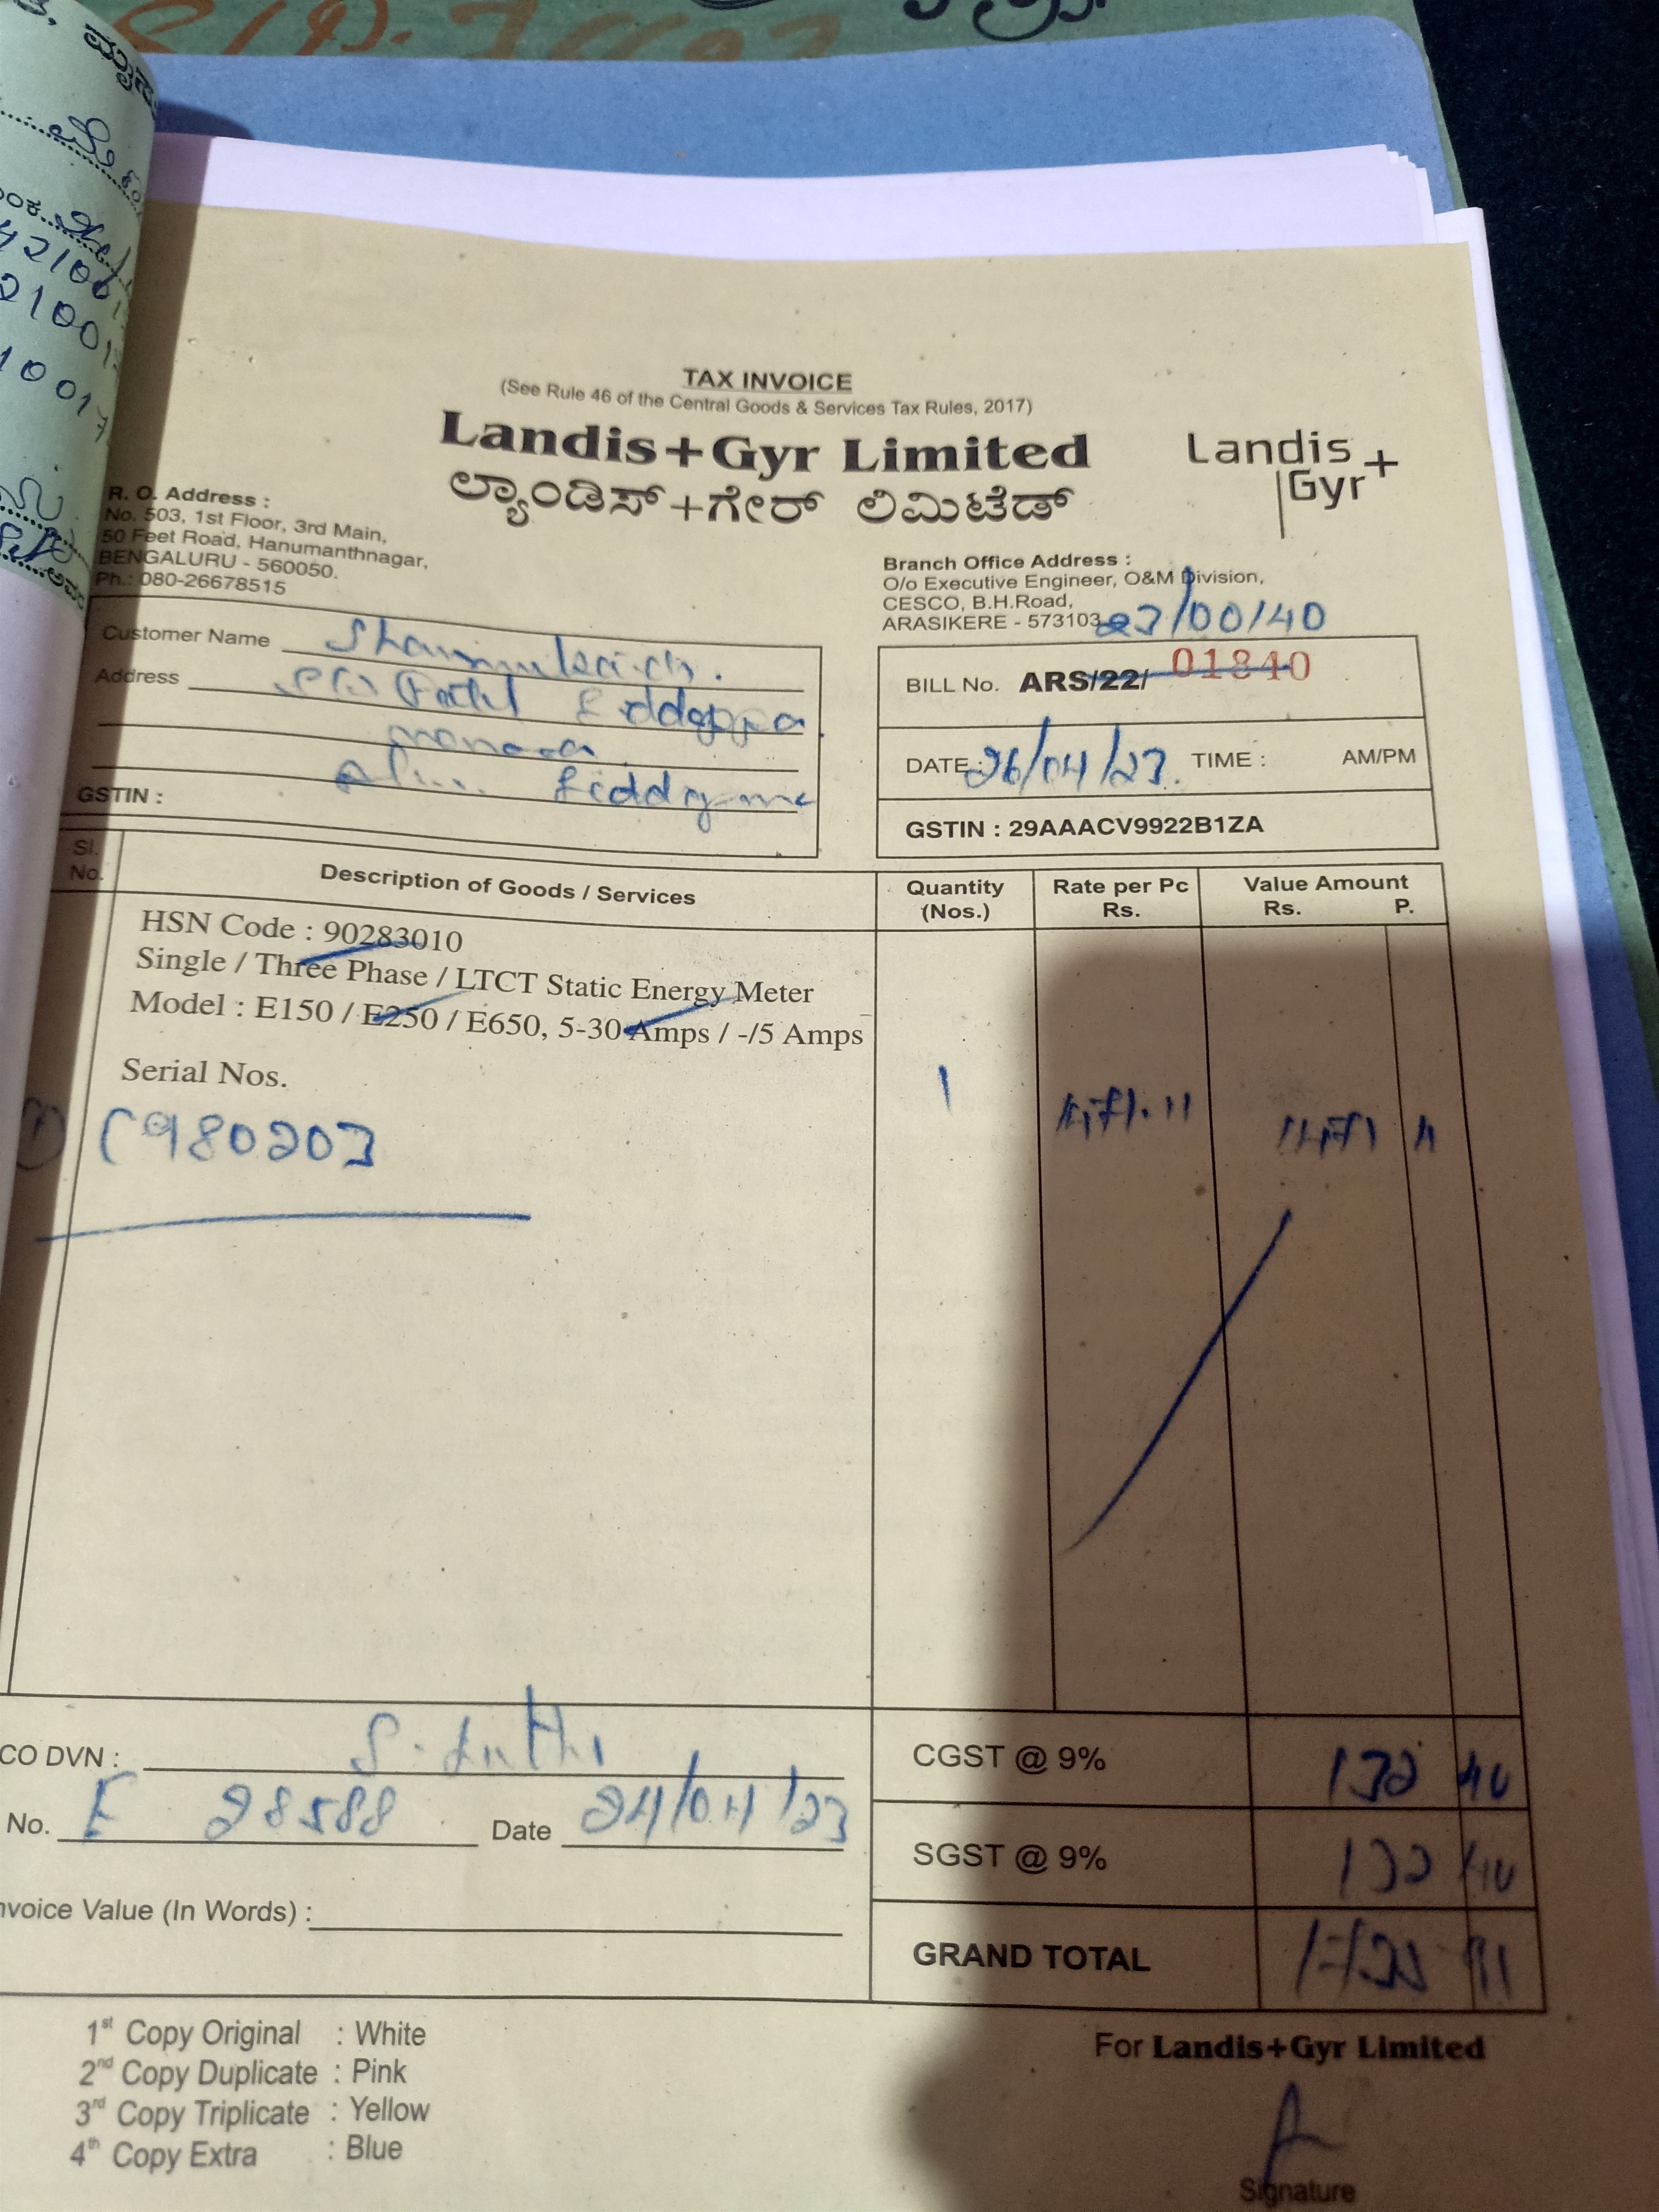 42100
21001
1001
TAX INVOICE
(See Rule 46 of the Central Goods & Services Tax Rules, 2017)
Landis+Gyr Limited
ಲ್ಯಾಂಡಿಸ್+ಗೇರ್ ಲಿಮಿಟೆಡ್
Landis
Gyr+
R. O. Address :
No. 503, 1st Floor, 3rd Main,
50 Feet Road, Hanumanthnagar,
BENGALURU - 560050.
Ph.: 080-26678515
Branch Office Address :
O/o Executive Engineer, O&M Division,
CESCO, B.H.Road,
ARASIKERE - 573103
23/00140
Customer Name
Address
GSTIN :
BILL No. ARS/22/ 01840
DATE : 26/04/23. TIME : AM/PM
GSTIN : 29AAACV9922B1ZA
Sl. No. Description of Goods / Services Quantity (Nos.) Rate per Pc Rs. Value Amount Rs. P.
HSN Code : 90283010
Single / Three Phase / LTCT Static Energy Meter
Model : E150 / E250 / E650, 5-30 Amps / -/5 Amps
Serial Nos.
1 1471.11 1471 11
C980203
CO DVN :
No. 28588 Date 24/04/23
nvoice Value (In Words) :
CGST @ 9% 132 40
SGST @ 9% 132 40
GRAND TOTAL 1735 91
1st Copy Original : White
2nd Copy Duplicate : Pink
3rd Copy Triplicate : Yellow
4th Copy Extra : Blue
For Landis+Gyr Limited
Signature